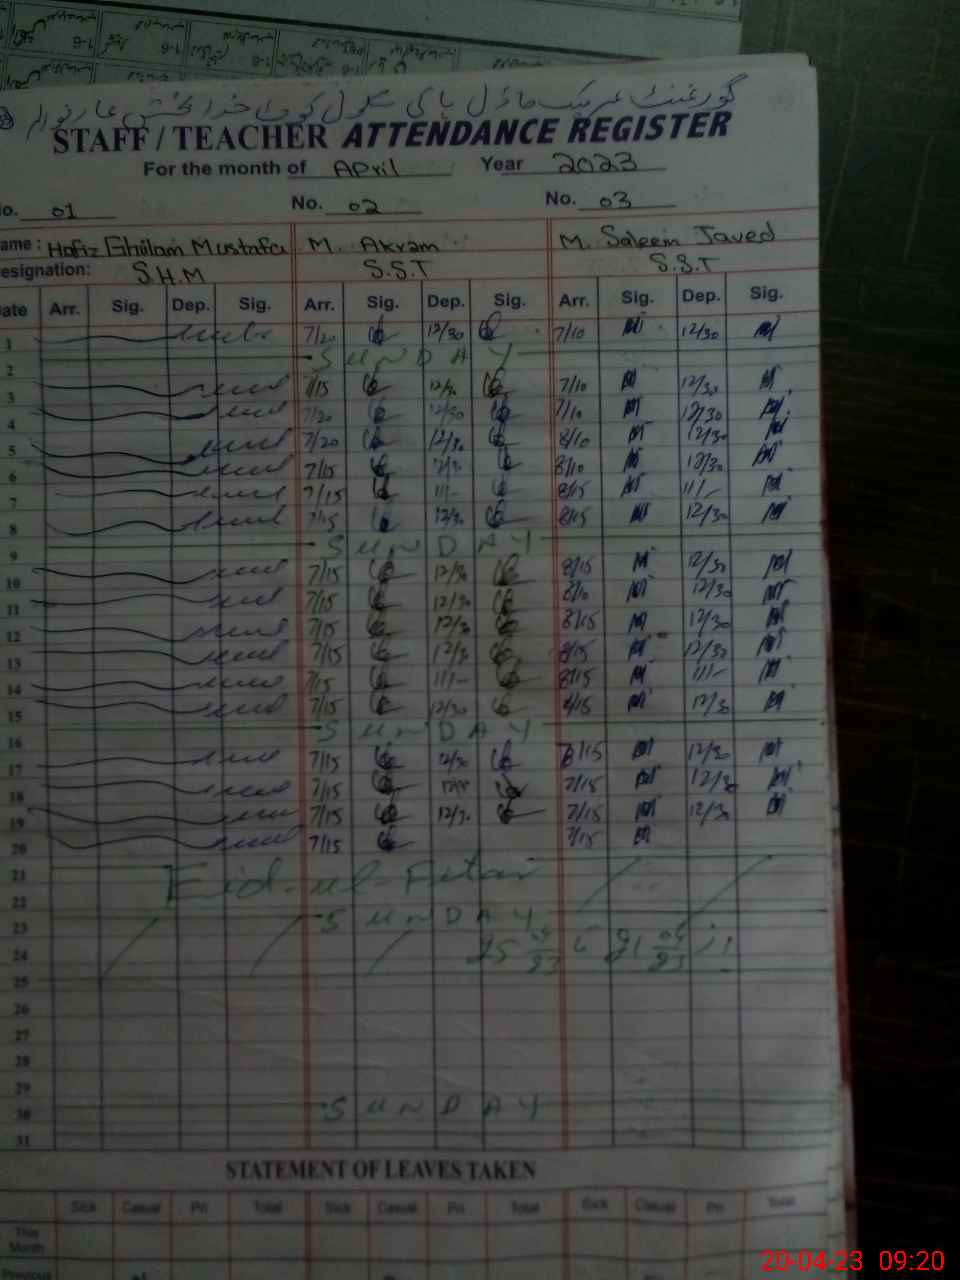 گورنمنٹ عربیک ماڈل ہائی سکول کوٹ خدا بخش عارفوالہ
STAFF / TEACHER ATTENDANCE REGISTER
For the month of April Year 2023
No. 01 No. 02 No. 03
ame : Hafiz Ghulam Mustafa M. Akram M. Saleem Javed
esignation: S.H.M S.S.T S.S.T
ate Arr. Sig. Dep. Sig. Arr. Sig. Dep. Sig. Arr. Sig. Dep. Sig.
1 7/20 12/30 7/10 12/30
2 SUNDAY
3 7/15 12/30 7/10 12/30
4 7/20 12/30 7/10 12/30
5 7/20 12/30 8/10 12/30
6 7/15 12/30 8/10 12/30
7 7/15 11/- 8/15 11/-
8 7/15 12/30 8/15 12/30
9 SUNDAY
10 7/15 12/30 8/15 12/30
11 7/15 12/30 8/10 12/30
12 7/15 12/30 8/15 12/30
13 7/15 12/30 8/15 12/30
14 7/15 11/- 8/15 11/-
15 7/15 12/30 8/15 12/30
16 SUNDAY
17 7/15 12/30 8/15 12/30
18 7/15 7/15 12/30
19 7/15 12/30 7/15 12/30
20 7/15 7/15
21
22 Eid-ul-Fitar
23 SUNDAY
24
25
26
27
28
29
30 SUNDAY
31
STATEMENT OF LEAVES TAKEN
Sick Casual Pri Total Sick Casual Pri Total Sick Casual Pri Total
This
Month
Previous
20-04-23 09:20